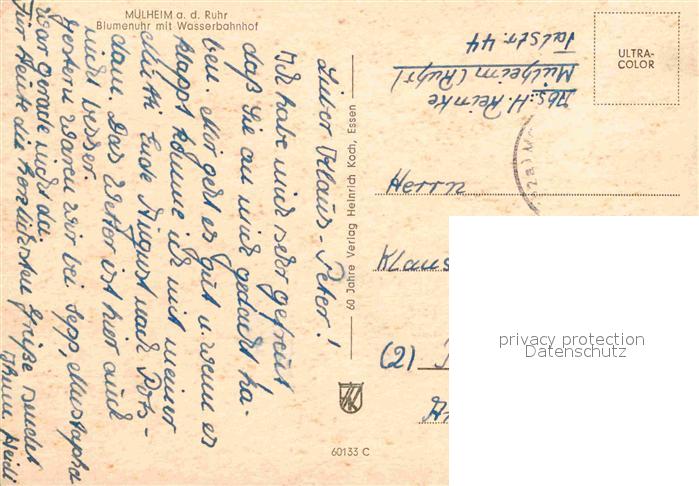 MÜLHEIM a. d. Ruhr
Blumenuhr mit Wasserbahnhof
Lieber Klaus-Peter!
Ich habe mich sehr gefreut
daß Sie an mich gedacht ha-
ben. Mir geht es gut u. wenn es
klappt komme ich mit meiner
Mutti Ende August nach Pots-
dam. Das Wetter ist hier auch
nicht besser.
Gestern waren wir bei Sepp, Mustapha
war gerade nicht da.
Für heute die herzlichsten Grüße sendet
Ihnen Heidi
60 Jahre Verlag Heinrich Koch, Essen
60133 C
Abs: H. Reinke
Mülheim (Ruhr)
Talstr. 44
ULTRA-
COLOR
Herrn
Klaus
(2)
privacy protection
Datenschutz